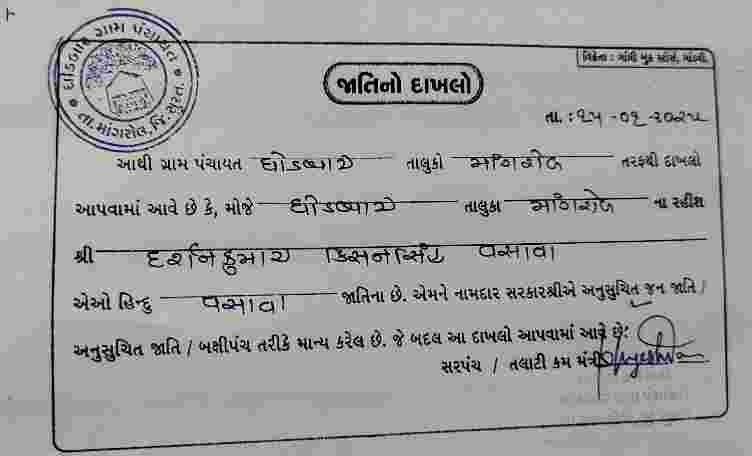 ઘોડબાર ગ્રામ પંચાયત
તા. માંગરોલ, જિ. સુરત.
વિક્રેતા : ગાંધી બુક સ્ટોર્સ, માંડવી.
જાતિનો દાખલો
તા. : ૧૫ -૦૧ -૨૦૨૫
આથી ગ્રામ પંચાયત ઘોડબાર તાલુકો માંગરોલ તરફથી દાખલો
આપવામાં આવે છે કે, મોજે ઘોડબાર તાલુકા માંગરોલ ના રહીશ
શ્રી દર્શનકુમાર કિસનસિંહ વસાવા
એઓ હિન્દુ વસાવા જાતિના છે. એમને નામદાર સરકારશ્રીએ અનુસુચિત જન જાતિ /
અનુસુચિત જાતિ / બક્ષીપંચ તરીકે માન્ય કરેલ છે. જે બદલ આ દાખલો આપવામાં આવે છે.
સરપંચ / તલાટી કમ મંત્રી